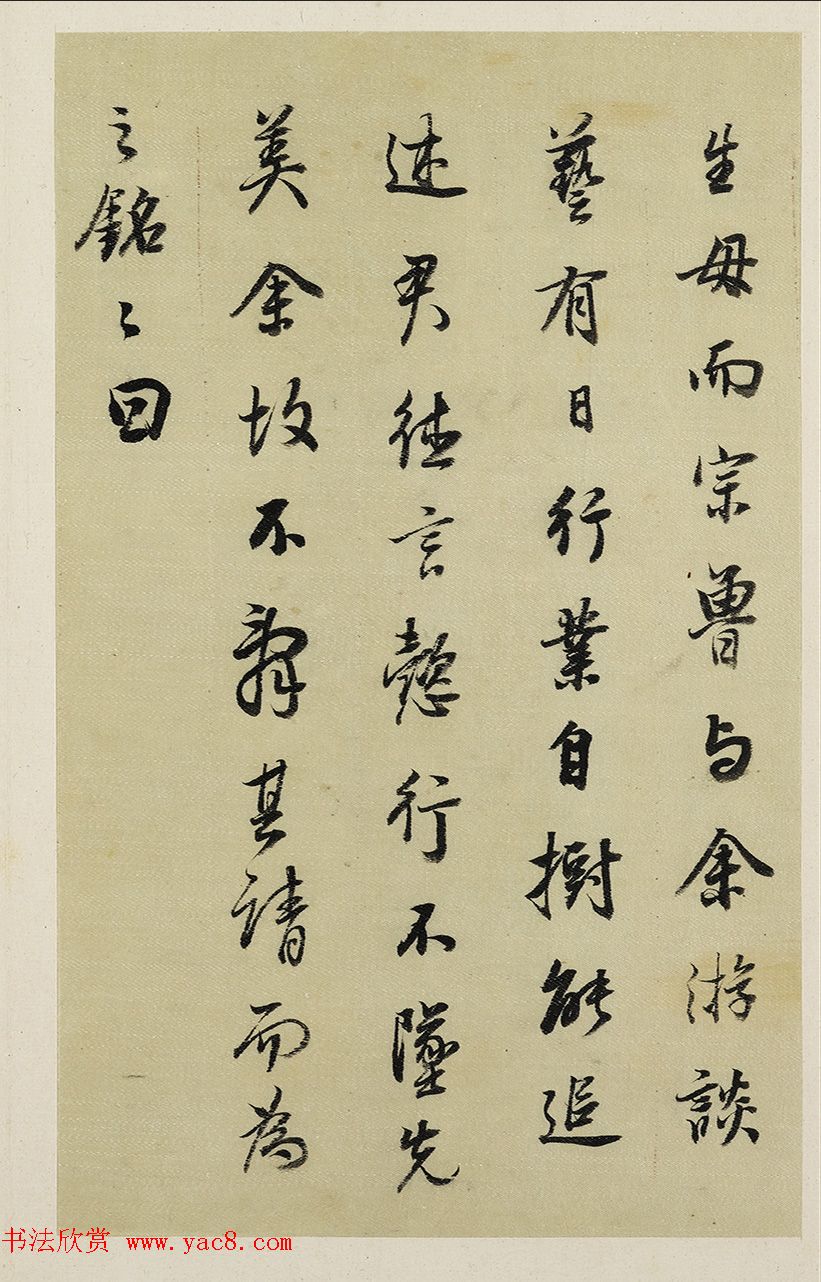 生母而宗魯与余游談
藝有日行業自樹能追
述尹德言懿行不墜先
美余故不辭其請而為
之銘〻曰
书法欣赏 www.yac8.com